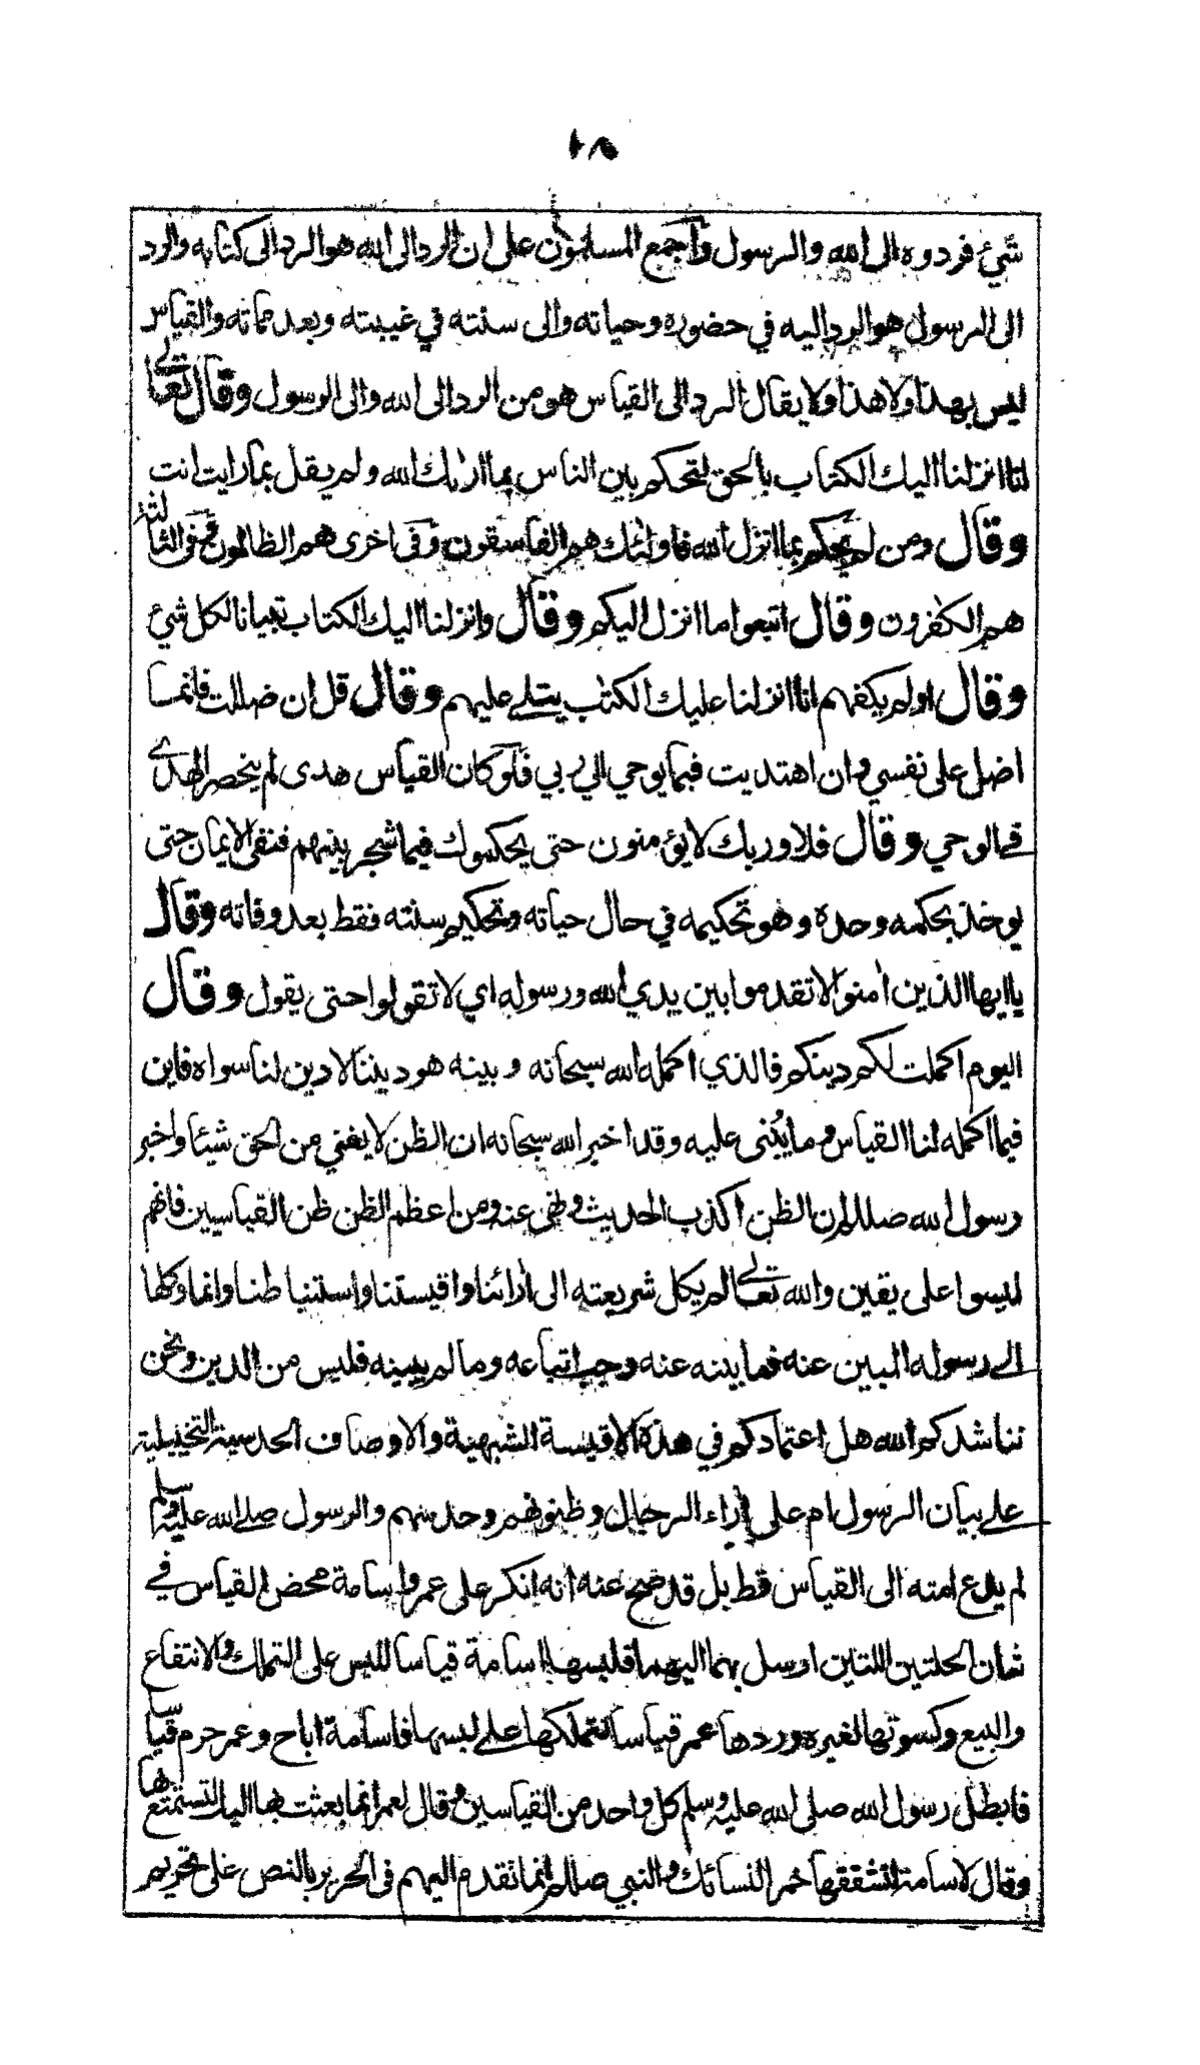 ١٠٨
شيء فردوه الى الله والرسول واجمع المسلمون على ان الرد الى الله هو الرد الى كتابه والرد
الى الرسول هو الرد اليه في حضوره وحياته والى سنته في غيبته وبعد مماته والقياس
ليس بهذا ولا هذا ولا يقال الرد الى القياس هو من الرد الى الله والى الرسول وقال تعالى
انا انزلنا اليك الكتاب بالحق لتحكم بين الناس بما اراك الله ولم يقل بما رايت انت
وقال ومن لم يحكم بما انزل الله فاولئك هم الفاسقون وفى اخرى هم الظالمون وفى الثالثة
هم الكفرون وقال اتبعوا ما انزل اليكم وقال وانزلنا اليك الكتاب تبيانا لكل شيء
وقال اولم يكفهم انا انزلنا عليك الكتب يتلى عليهم وقال قل ان ضللت فانما
اضل على نفسي وان اهتديت فبما يوحي الي ربي فلو كان القياس هدى لم ينحصر الهدى
في الوحي وقال فلا وربك لا يؤمنون حتى يحكموك فيما شجر بينهم فنفى الايمان حتى
يوخذ بحكمه وحده وهو تحكيمه في حال حياته وتحكيم سنته فقط بعد وفاته وقال
يا ايها الذين امنوا لا تقدموا بين يدي الله ورسوله اي لا تقولوا حتى يقول وقال
اليوم اكملت لكم دينكم فالذي اكمله الله سبحانه وبينه هو ديننا لا دين لنا سواه فاين
فيما اكمله لنا القياس وما يبنى عليه وقد اخبر الله سبحانه ان الظن لا يغني من الحق شيئا واخبر
رسول الله صللم ان الظن اكذب الحديث ونهى عنه ومن اعظم الظن ظن القياسيين فانهم
ليسوا على يقين والله تعالى لم يكل شريعته الى ارائنا واقيستنا واستنباطنا وانما وكلها
الى رسوله المبين عنه فما بينه عنه وجب اتباعه وما لم يبينه فليس من الدين ونحن
نناشدكم الله هل اعتمادكم في هذه الاقيسة الشبهية والاوصاف الحدسية التخييلية
على بيان الرسول ام على اراء الرجال وظنونهم وحدسهم والرسول صلى الله عليه وسلم
لم يدع امته الى القياس قط بل قد صح عنه انه انكر على عمر واسامة محض القياس في
شان الحلتين اللتين ارسل بهما اليهما فلبسها اسامة قياسا للبس على التملك والانتفاع
والبيع وكسوتها لغيره وردها عمر قياسا لتملكها على لبسها فاسامة اباح وعمر حرم قياسا
فابطل رسول الله صلى الله عليه وسلم كل واحد من القياسين وقال لعمر انما بعثت بها اليك لتستمتع بها
وقال لاسامة لتشققها خمرا لنسائك والنبي صللم انما تقدم اليهم فى الحرير بالنص على تحريم